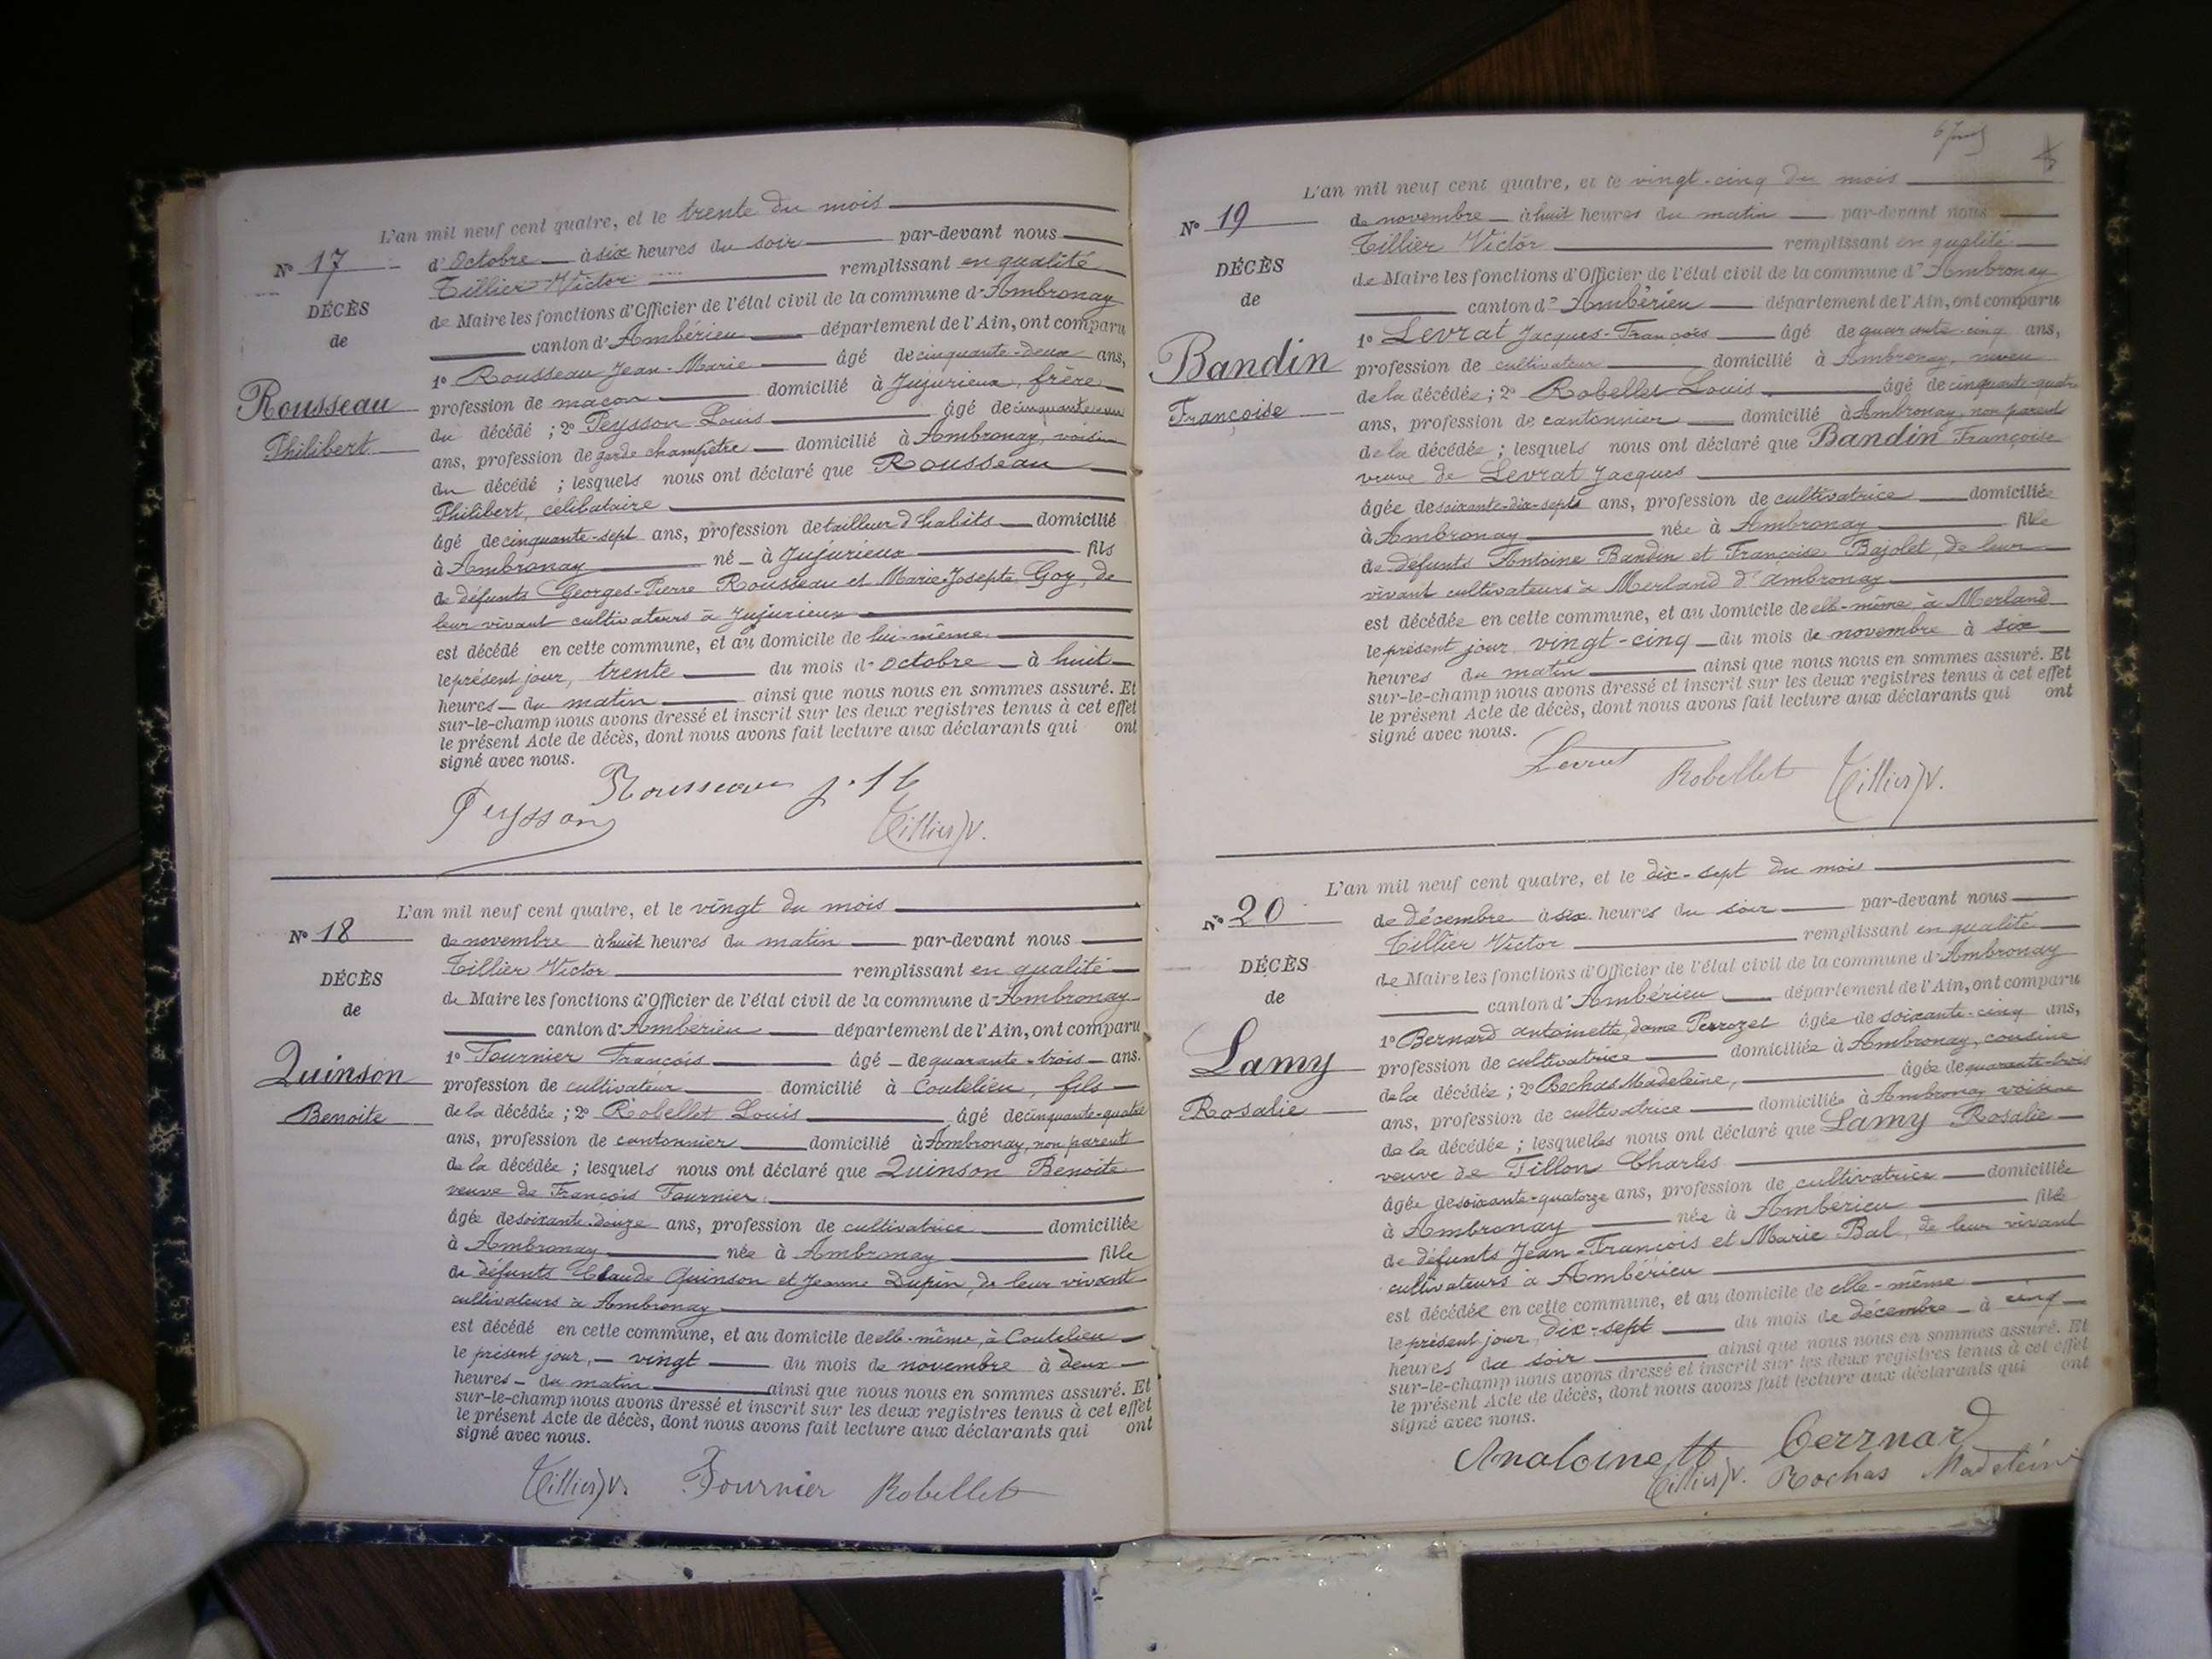 L'an mil neuf cent quatre, et le trente du mois
N° 17
d'Octobre à six heures du soir par-devant nous
Tillier Victor remplissant en qualité
DÉCÈS
de Maire les fonctions d'Officier de l'état civil de la commune d'Ambronay
de
canton d'Ambérieu département de l'Ain, ont comparu
1° Rousseau Jean-Marie âgé de cinquante-deux ans,
Rousseau
profession de maçon domicilié à Jujurieux, frère
du décédé ; 2° Peysson Louis âgé de
Philibert
ans, profession de garde champêtre domicilié à Ambronay, voisin
du décédé ; lesquels nous ont déclaré que Rousseau
Philibert, célibataire
âgé de cinquante-sept ans, profession de tailleur d'habits domicilié
à Ambronay né à Jujurieux fils
de défunts Georges-Pierre Rousseau et Marie-Josepte Goy, de
leur vivant cultivateurs à Jujurieux
est décédé en cette commune, et au domicile de lui-même
le présent jour, trente du mois d'octobre à huit
heures du matin ainsi que nous nous en sommes assuré. Et
sur-le-champ nous avons dressé et inscrit sur les deux registres tenus à cet effet
le présent Acte de décès, dont nous avons fait lecture aux déclarants qui ont
signé avec nous.
Rousseau
Peysson
Tillier V.
L'an mil neuf cent quatre, et le vingt du mois
N° 18
de novembre à huit heures du matin par-devant nous
Tillier Victor remplissant en qualité
DÉCÈS
de Maire les fonctions d'Officier de l'état civil de la commune d'Ambronay
de
canton d'Ambérieu département de l'Ain, ont comparu
1° Fournier François âgé de quarante-trois ans.
Quinson
profession de cultivateur domicilié à Coutelieu, fils
Benoite
de la décédée ; 2° Robellet Louis âgé de cinquante-quatre
ans, profession de cantonnier domicilié à Ambronay, non parent
de la décédée ; lesquels nous ont déclaré que Quinson Benoite
veuve de François Fournier
âgée de soixante-douze ans, profession de cultivatrice domiciliée
à Ambronay née à Ambronay fille
de défunts Claude Quinson et Jeanne Dupin, de leur vivant
cultivateurs à Ambronay
est décédé en cette commune, et au domicile de elle-même, à Coutelieu
le présent jour, vingt du mois de novembre à deux
heures du matin ainsi que nous nous en sommes assuré. Et
sur-le-champ nous avons dressé et inscrit sur les deux registres tenus à cet effet
le présent Acte de décès, dont nous avons fait lecture aux déclarants qui ont
signé avec nous.
Tillier V. Fournier Robellet
L'an mil neuf cent quatre, et le vingt-cinq du mois
N° 19
de novembre à huit heures du matin par-devant nous
Tillier Victor remplissant en qualité
DÉCÈS
de Maire les fonctions d'Officier de l'état civil de la commune d'Ambronay
de
canton d'Ambérieu département de l'Ain, ont comparu
1° Levrat Jacques-François âgé de quarante-cinq ans,
Bandin
profession de cultivateur domicilié à Ambronay, neveu
de la décédée ; 2° Robellet Louis âgé de cinquante-quatre
Françoise
ans, profession de cantonnier domicilié à Ambronay, non parent
de la décédée ; lesquels nous ont déclaré que Bandin Françoise
veuve de Levrat Jacques
âgée de soixante-dix-sept ans, profession de cultivatrice domiciliée
à Ambronay née à Ambronay fille
de défunts Antoine Bandin et Françoise Bajolet, de leur
vivant cultivateurs à Merland d'Ambronay
est décédée en cette commune, et au domicile de elle-même, à Merland
le présent jour, vingt-cinq du mois de novembre à six
heures du matin ainsi que nous nous en sommes assuré. Et
sur-le-champ nous avons dressé et inscrit sur les deux registres tenus à cet effet
le présent Acte de décès, dont nous avons fait lecture aux déclarants qui ont
signé avec nous.
Levrat Robellet Tillier V.
L'an mil neuf cent quatre, et le dix-sept du mois
N° 20
de décembre à six heures du soir par-devant nous
Tillier Victor remplissant en qualité
DÉCÈS
de Maire les fonctions d'Officier de l'état civil de la commune d'Ambronay
de
canton d'Ambérieu département de l'Ain, ont comparu
1° Bernard Antoinette, dame Perrozet âgée de soixante-cinq ans,
Lamy
profession de cultivatrice domiciliée à Ambronay, cousine
de la décédée ; 2° Rochas Madeleine, âgée de quarante-trois
Rosalie
ans, profession de cultivatrice domiciliée à Ambronay voisine
de la décédée ; lesquelles nous ont déclaré que Lamy Rosalie
veuve de Tillon Charles
âgée de soixante-quatorze ans, profession de cultivatrice domiciliée
à Ambronay née à Ambérieu fille
de défunts Jean-François et Marie Bal, de leur vivant
cultivateurs à Ambérieu
est décédée en cette commune, et au domicile de elle-même
le présent jour, dix-sept du mois de décembre à cinq
heures du soir ainsi que nous nous en sommes assuré. Et
sur-le-champ nous avons dressé et inscrit sur les deux registres tenus à cet effet
le présent Acte de décès, dont nous avons fait lecture aux déclarants qui ont
signé avec nous.
Anatoinette Berrnard
Tillier V. Rochas Madeleine